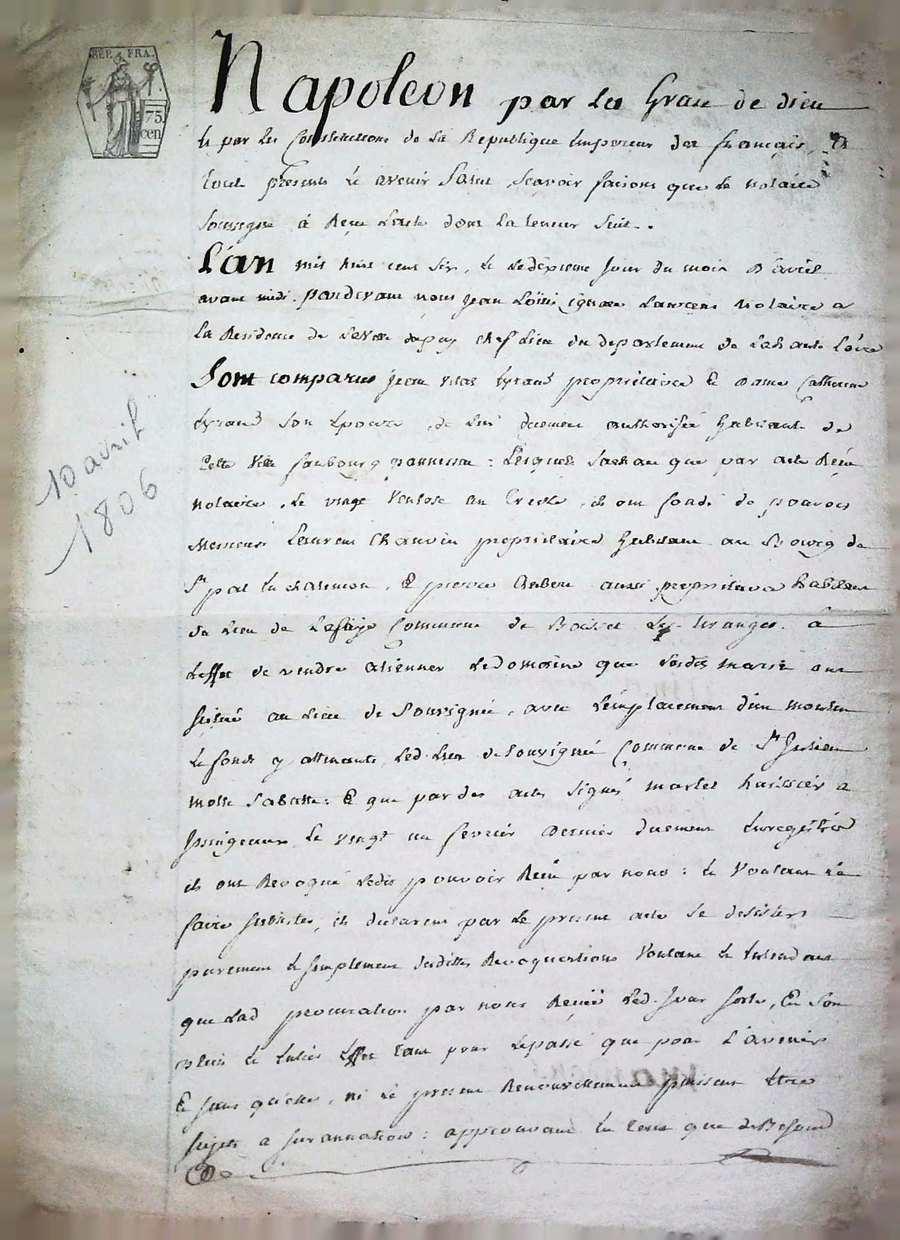 REP. FRA.
75.
cen
Napoleon par La Grace de dieu
Et par les Constitutions de La Republique Empereur des français, a
tous presents et avenir Salut, scavoir faisons que le notaire
soussigné a Reçu L'acte dont la teneur suit.
L'an mil huit cent six, le dixieme jour du mois D'avril
avant midi. pardevant nous jean Loüis ignace Laurens Notaire a
La Residence de chef Lieu du departement de La haute Loire
Sont comparus jean vital eyraud propriétaire Et Dame Catherine
eyraud son Epouze, de lui duement authorisée habitants de
Cette ville faubourg pannessac: Lesquels que par acte Reçu
notaire, Le vingt Ventose an treize, ils ont fondé de pouvoir
Messieurs Laurens Chauvin propriétaire habitant au Bourg de
St pal en chalencon, Et pierre aussi propriétaire habitant
du Lieu de Lafaye Commune de Boisset a
L'effet de vendre aliener Le domaine que Lesdits mariés ont
situé au Lieu de Souvigné, avec L'emplacement d'un moulin
Le fonds y attenant, Led. Lieu de Souvigné Commune de St julien
molle Sabatte: Et que par des actes signés huissier a
jssingeaux Le vingt un fevrier dernier duement Enregistré
ils ont Revoqué Ledit pouvoir Reçu par nous: Et Voulant le
faire subsister, ils declarent par Le present acte se desister
purement Et simplement desdittes Revoquations Voulant Et Entendant
que Lad procuration par nous Reçüe Led. jour sorte, En son
plein Et Entier Effet tant pour Lepassé que pour L'avenir
Et sans qu'elle, ni Le present Renouvellement puissent Etre
sujets a surannation: approuvant tout ce que